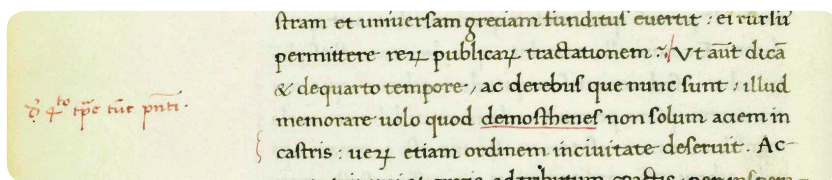 stram et uniuersam greciam funditus euertit : ei rursū
permittere reꝝ publicaꝝ tractationem :~ Vt aūt dicā
& dequarto tempore, ac derebus que nunc sunt : illud
memorare uolo quod demosthenes non solum aciem in
castris : ueꝝ etiam ordinem inciuitate deseruit. Ac-
4to tp̄e tūc pn̄ti.